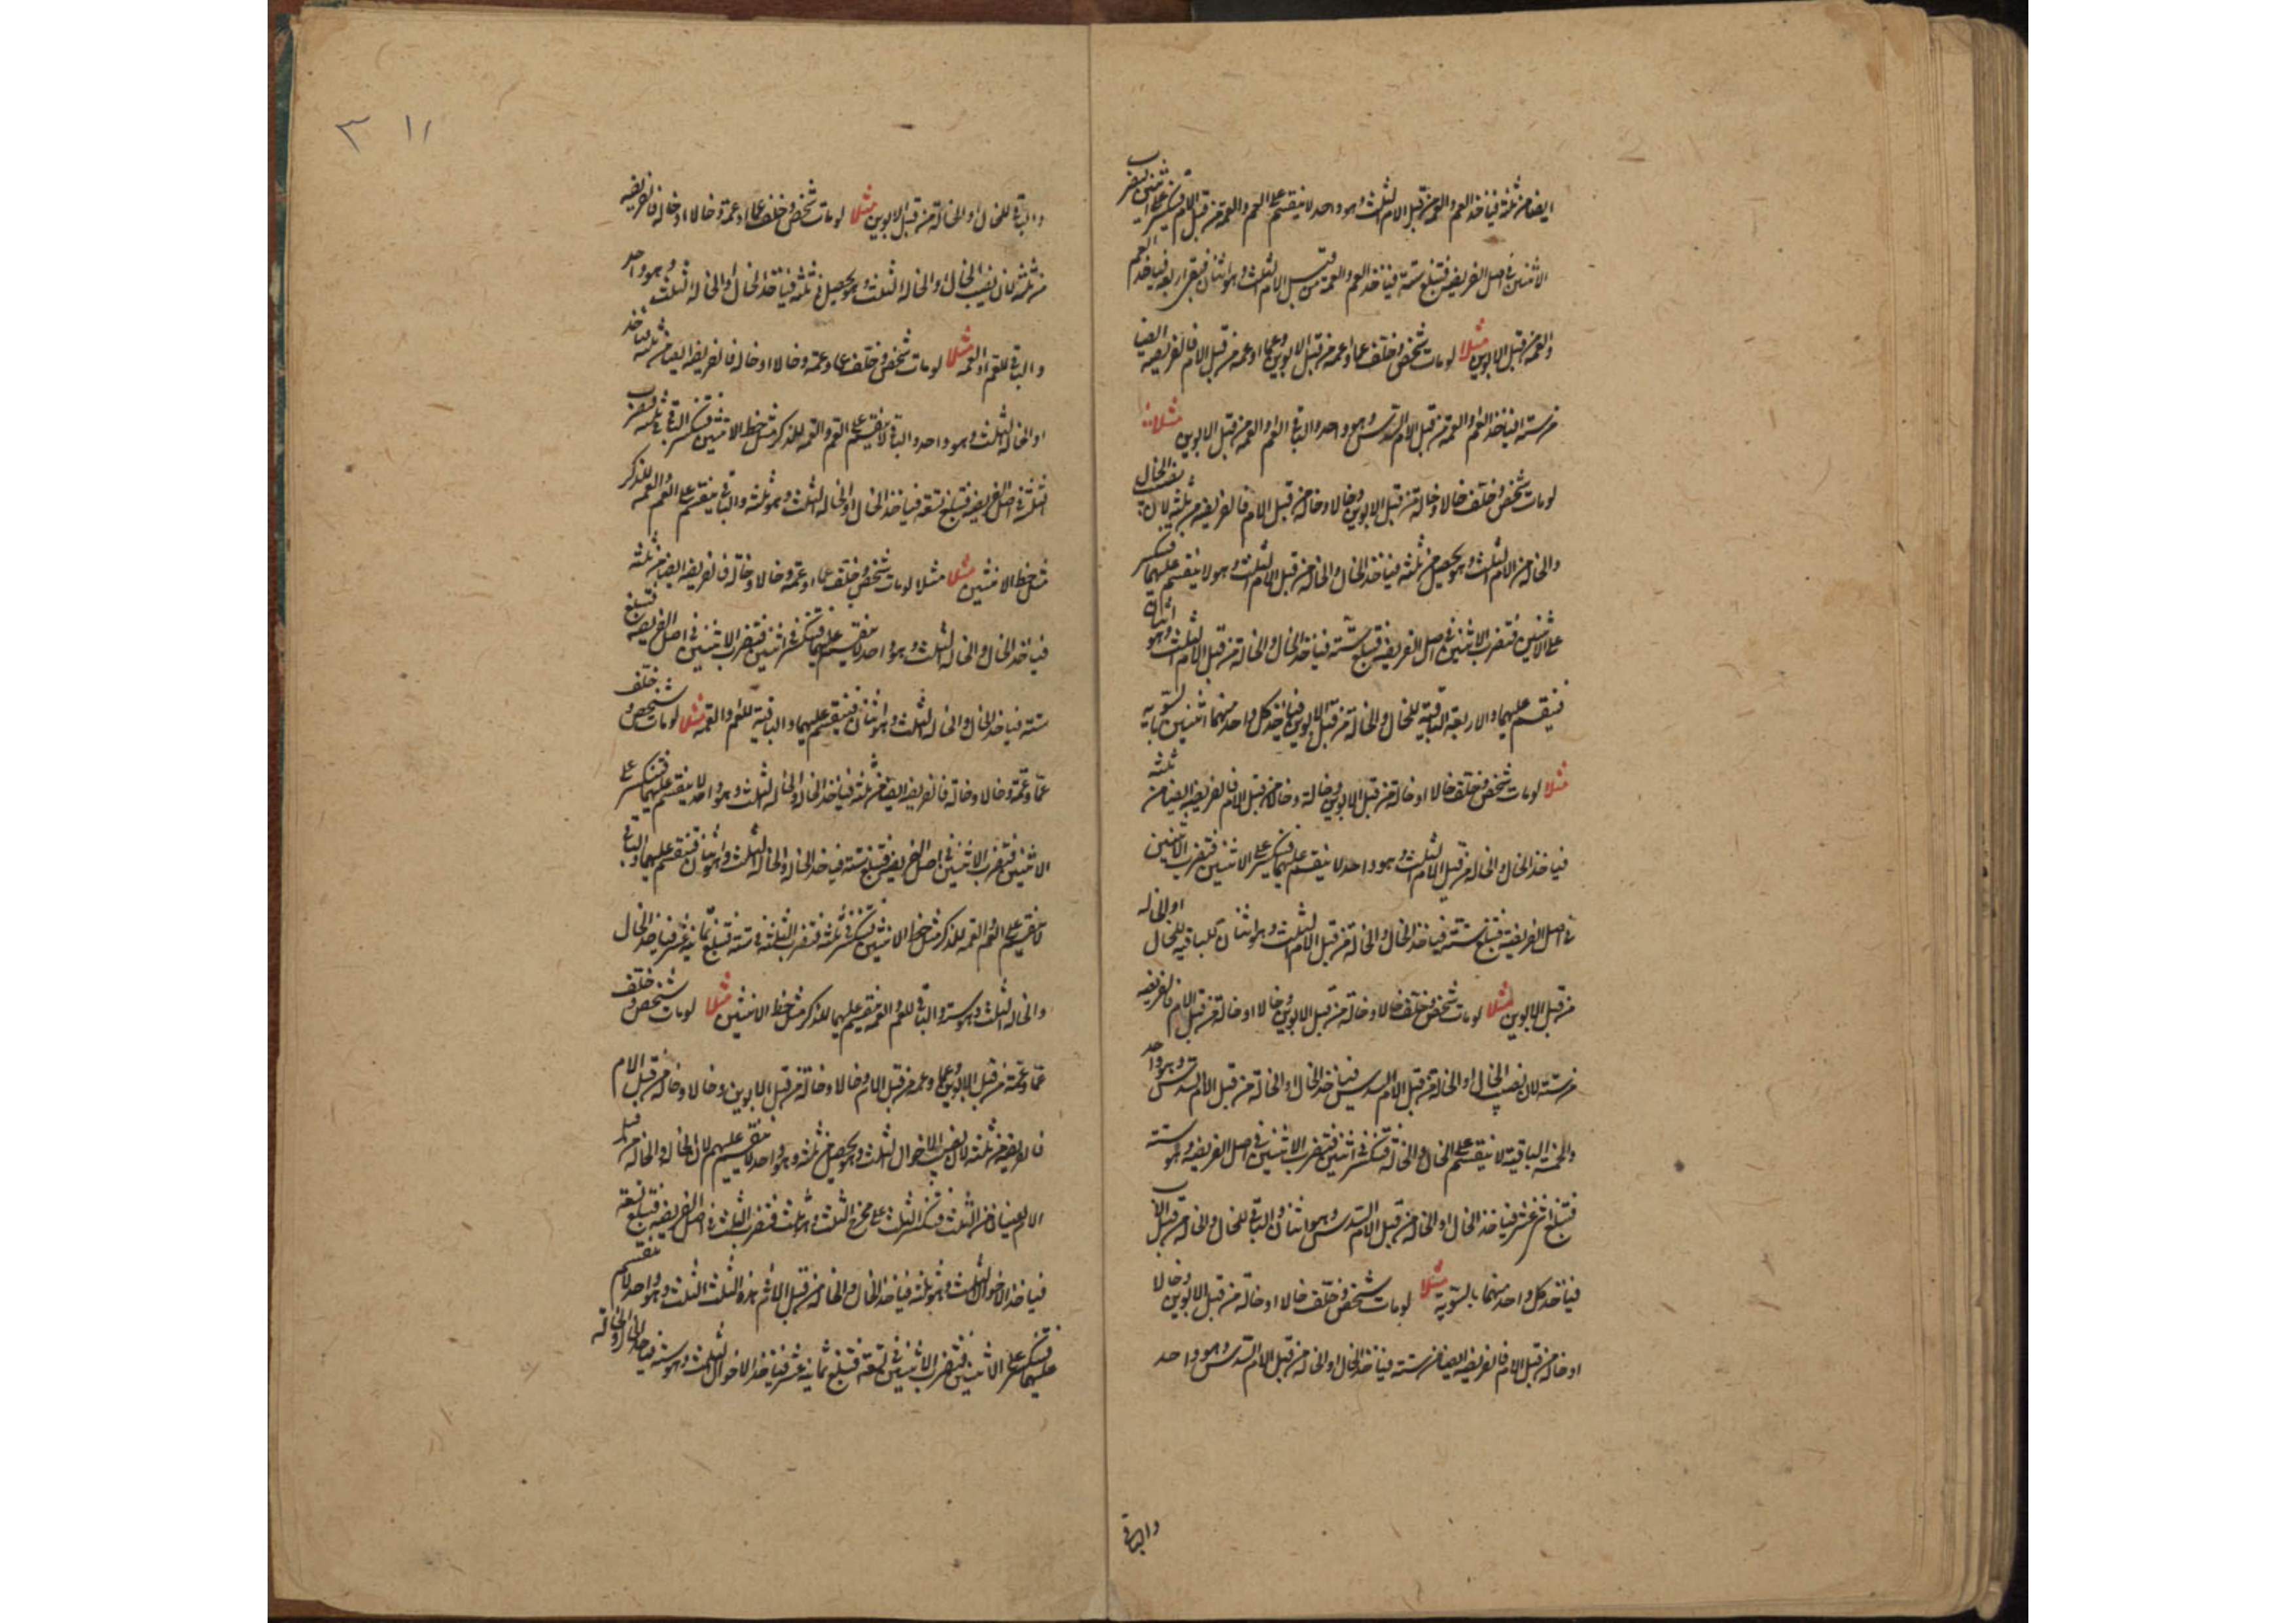 ايضا من ثلثة فياخذ العم والعمة من قبل الام الثلث وهو واحد لا ينقسم على العم والعمة من قبل الام فتنكسر على اثنين فتضرب
الاثنين في اصل الفريضة فتبلغ ستة فياخذ العم والعمة من قبل الام الثلث وهو اثنان فيبقى اربعة فياخذ العم
والعمة من قبل الابوين مثلا لو مات شخص وخلف عما او عمة من قبل الابوين وعما او عمة من قبل الام فالفريضة ايضا
من ستة فياخذ العم او العمة من قبل الام السدس وهو واحد والباقي العم او العمة من قبل الابوين مثلا
لو مات شخص وخلف خالا وخالة من قبل الابوين وخالا وخالة من قبل الام فالفريضة من ثلثة لان نصيب الخال
والخالة من الام الثلث وهو يحصل من ثلثة فياخذ الخال والخالة من قبل الام الثلث وهو لا ينقسم عليهما فتنكسر
على الاثنين فتضرب الاثنين في اصل الفريضة فتبلغ ستة فياخذ الخال والخالة من قبل الام الثلث وهو اثنان
فينقسم عليهما والاربعة الباقية للخال والخالة من قبل الابوين فياخذ كل واحد منهما اثنين بالسوية
مثلا لو مات شخص وخلف خالا او خالة من قبل الابوين وخالة وخالا من قبل الام فالفريضة ايضا من ثلثة
فياخذ الخال والخالة من قبل الام الثلث وهو واحد لا ينقسم عليهما فتنكسر على الاثنين فتضرب الاثنين
في اصل الفريضة فتبلغ ستة فياخذ الخال والخالة من قبل الام الثلث وهو اثنان والباقية للخال او الخالة
من قبل الابوين مثلا لو مات شخص وخلف خالا وخالة من قبل الابوين وخالا او خالة من قبل الام فالفريضة
من ستة لان نصيب الخال او الخالة من قبل الام السدس فياخذ الخال او الخالة من قبل الام السدس وهو واحد
والخمسة الباقية لا ينقسم على الخال والخالة فتنكسر في اثنين فتضرب الاثنين في اصل الفريضة وهو ستة
فتبلغ اثني عشر فياخذ الخال او الخالة من قبل الام السدس وهو اثنان والباقي للخال والخالة من قبل الاب
فياخذ كل واحد منهما بالسوية مثلا لو مات شخص وخلف خالا او خالة من قبل الابوين وخالا
او خالة من قبل الام فالفريضة ايضا من ستة فياخذ الخال او الخالة من قبل الام السدس وهو واحد
والباقي
١١ ٣
والباقي للخال او الخالة من قبل الابوين مثلا لو مات شخص وخلف عما او عمة وخالا او خالة فالفريضة
من ثلثة لان نصيب الخال او الخالة الثلث وهو يحصل في ثلثة فياخذ الخال او الخالة الثلث وهو واحد
والباقي للعم او العمة مثلا لو مات شخص وخلف عما وعمة وخالا او خالة فالفريضة ايضا من ثلثة فياخذ
او الخالة الثلث وهو واحد والباقي لا ينقسم على العم والعمة للذكر مثل حظ الانثيين فتنكسر الباقي في ثلثة فتضرب
الثلثة في اصل الفريضة فتبلغ تسعة فياخذ الخال او الخالة الثلث وهو ثلثة والباقي ينقسم على العم والعمة للذكر
مثل حظ الانثيين مثلا مثلا لو مات شخص وخلف عما او عمة وخالا وخالة فالفريضة ايضا من ثلثة
فياخذ الخال والخالة الثلث وهو واحد لا ينقسم عليهما فتنكسر في اثنين فتضرب الاثنين في اصل الفريضة فتبلغ
ستة فياخذ الخال والخالة الثلث وهو اثنان فينقسم عليهما والباقية للعم او العمة مثلا لو مات شخص وخلف
عما وعمة وخالا وخالة فالفريضة ايضا من ثلثة فياخذ الخال والخالة الثلث وهو واحد لا ينقسم عليهما فتنكسر على
الاثنين فتضرب الاثنين في اصل الفريضة فتبلغ ستة فياخذ الخال والخالة الثلث وهو اثنان فينقسم عليهما والباقي
لا ينقسم على العم والعمة للذكر مثل حظ الانثيين فتنكسر في ثلثة فتضرب الثلثة في ستة فتبلغ ثمانية عشر فياخذ الخال
والخالة الثلث وهو ستة والباقي للعم والعمة ينقسم عليهما للذكر مثل حظ الانثيين مثلا لو مات شخص وخلف
عما وعمة من قبل الابوين وعما وعمة من قبل الام وخالا وخالة من قبل الابوين وخالا وخالة من قبل الام
فالفريضة من ثلثة لان نصيب الاخوال الثلث وهو يحصل من ثلثة وهو واحد لا ينقسم عليهم لان الخال والخالة من قبل
الام نصيبهما من الثلث فتنكسر الثلث على مخرج الثلث وهو ثلث فتضرب الثلث في اصل الفريضة فتبلغ تسعة
فياخذ الاخوال الثلث وهو ثلثة فياخذ الخال والخالة من قبل الام هذه الثلث الثلث وهو واحد لا ينقسم
عليهما فتنكسر على الاثنين فتضرب الاثنين في تسعة فتبلغ ثمانية عشر فياخذ الاخوال الثلث وهو ستة فياخذ الخال والخالة